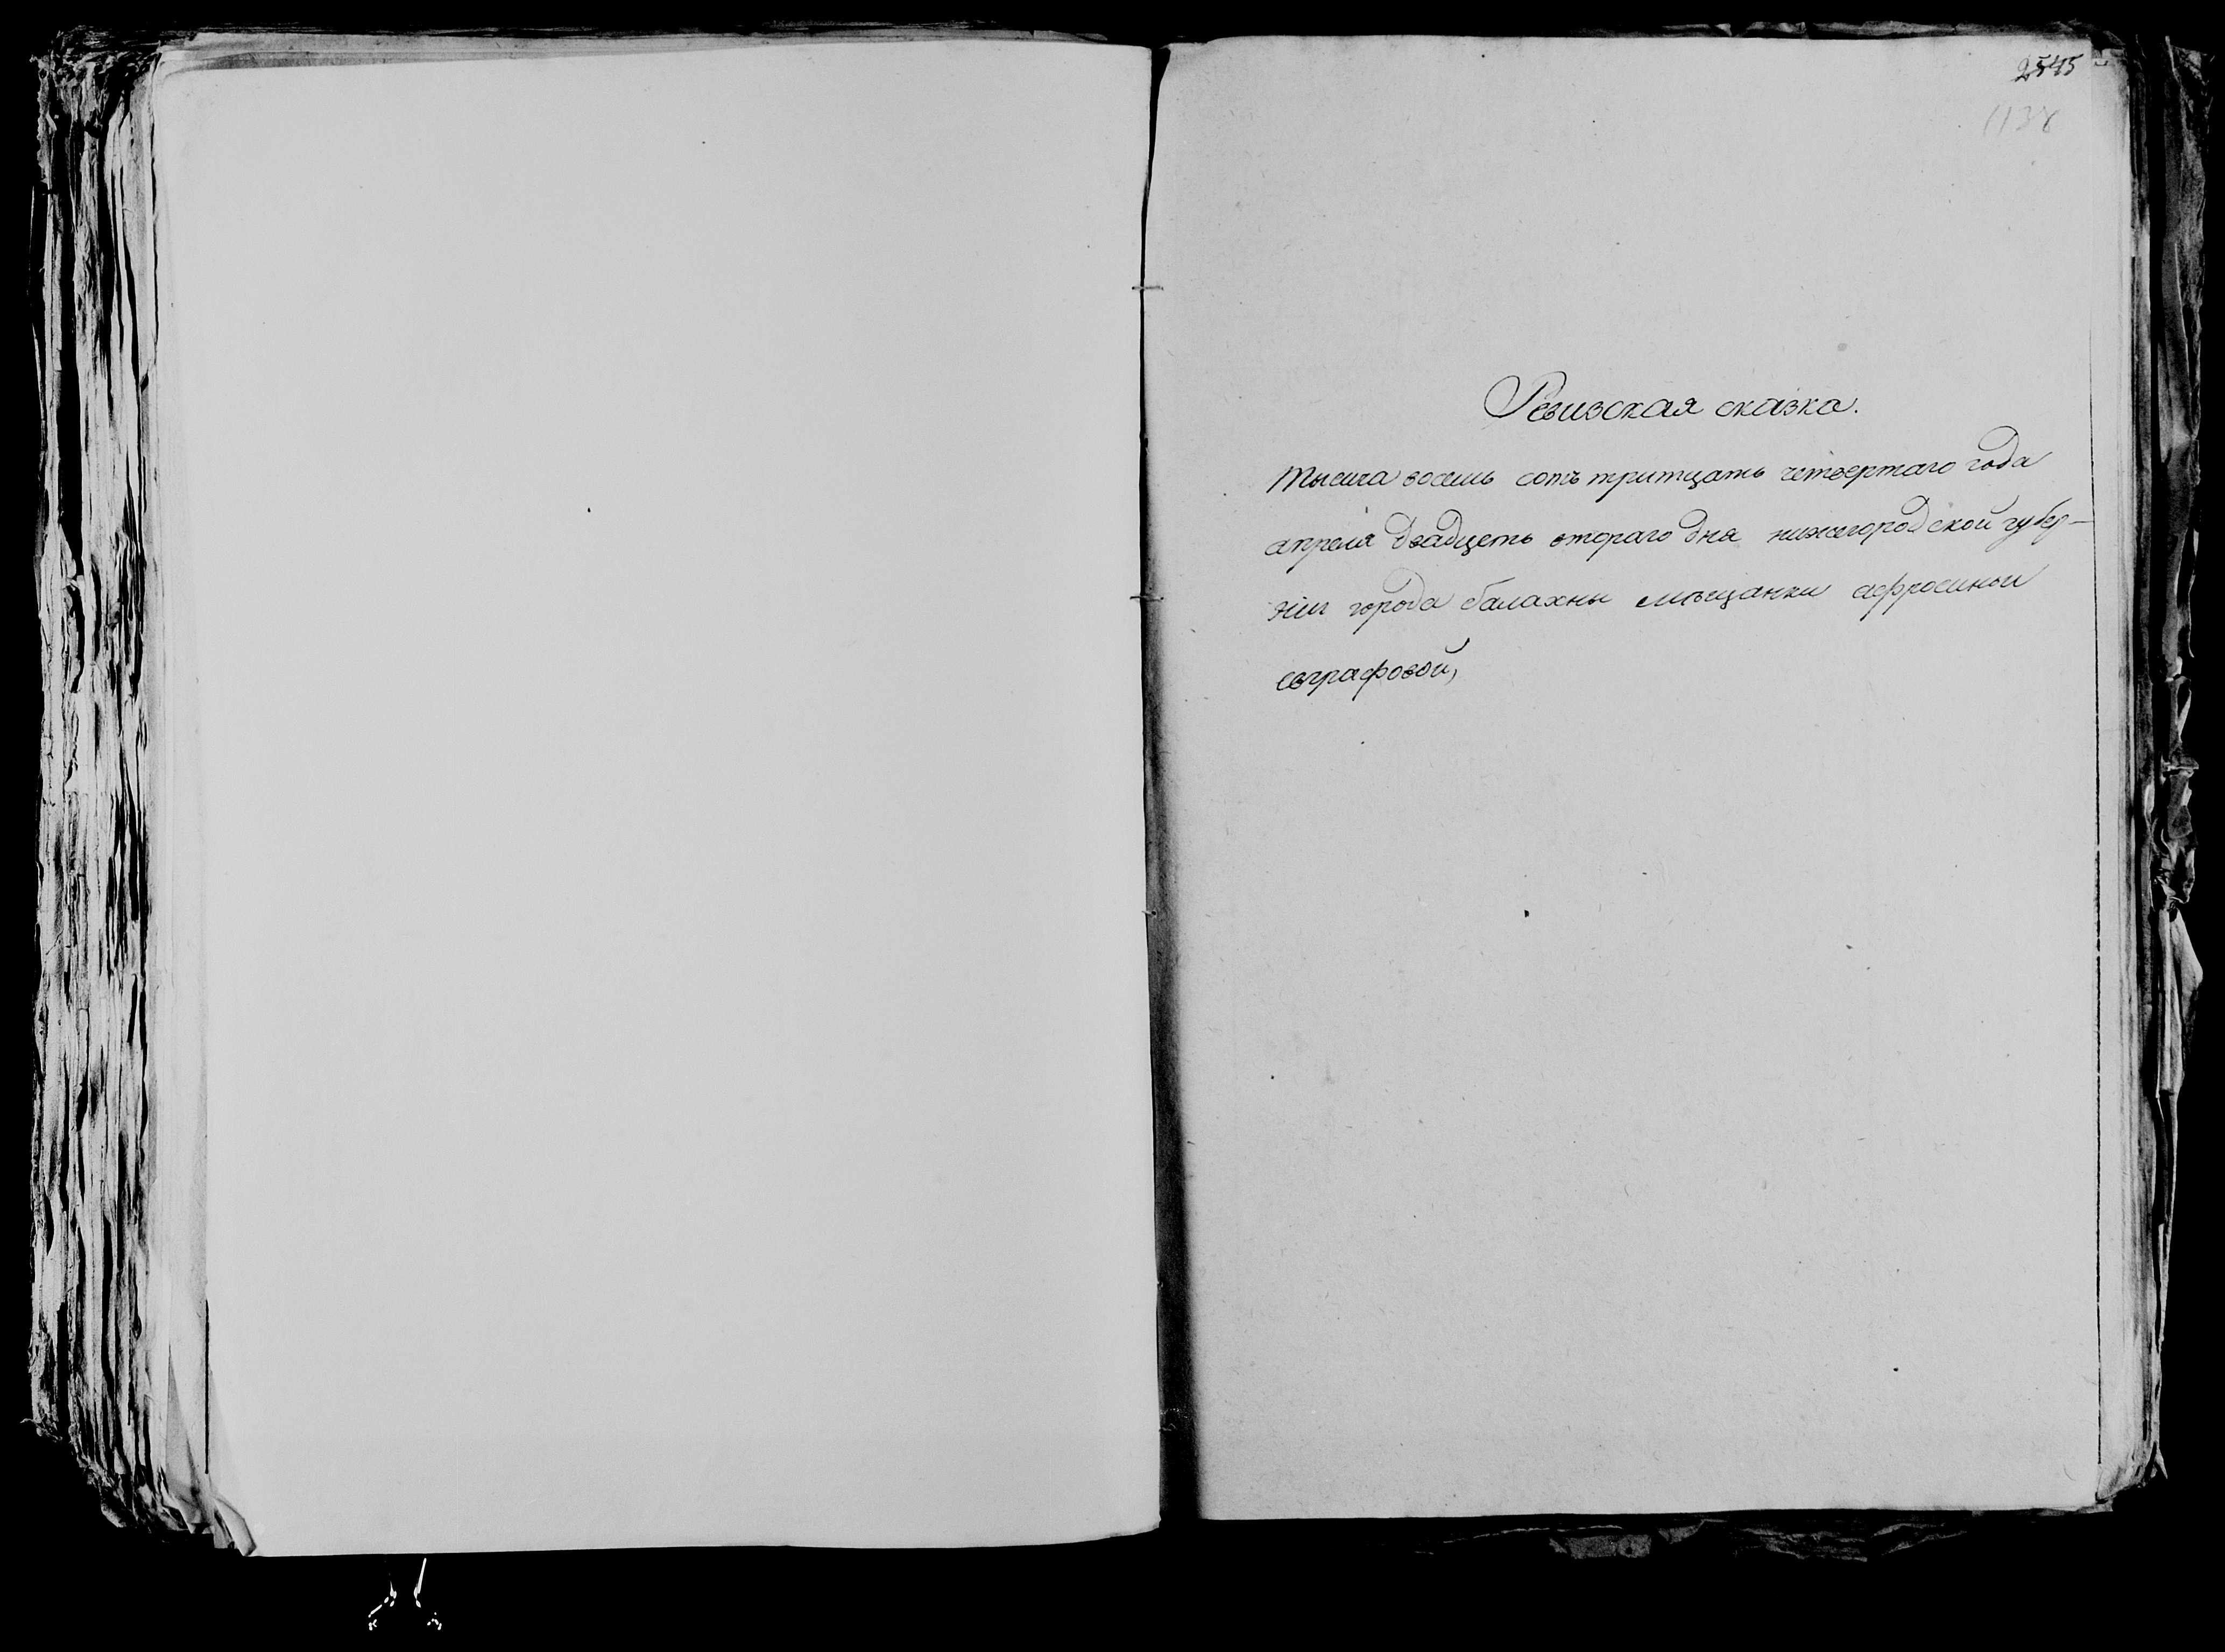 2545
1138
Ревизская сказка.
тысеча восемь сотъ тритцать четвертаго года
апреля двадцеть втораго дня нижегородской губер-
нiи города балахны мѣщанки афросиньи
евграфовой,